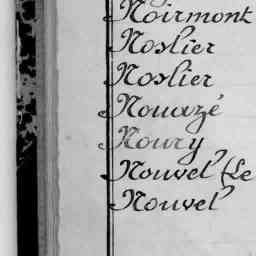 Noirmont
Noslier
Noslier
Nouazé
Noury
Nouvel (Le
Nouvel